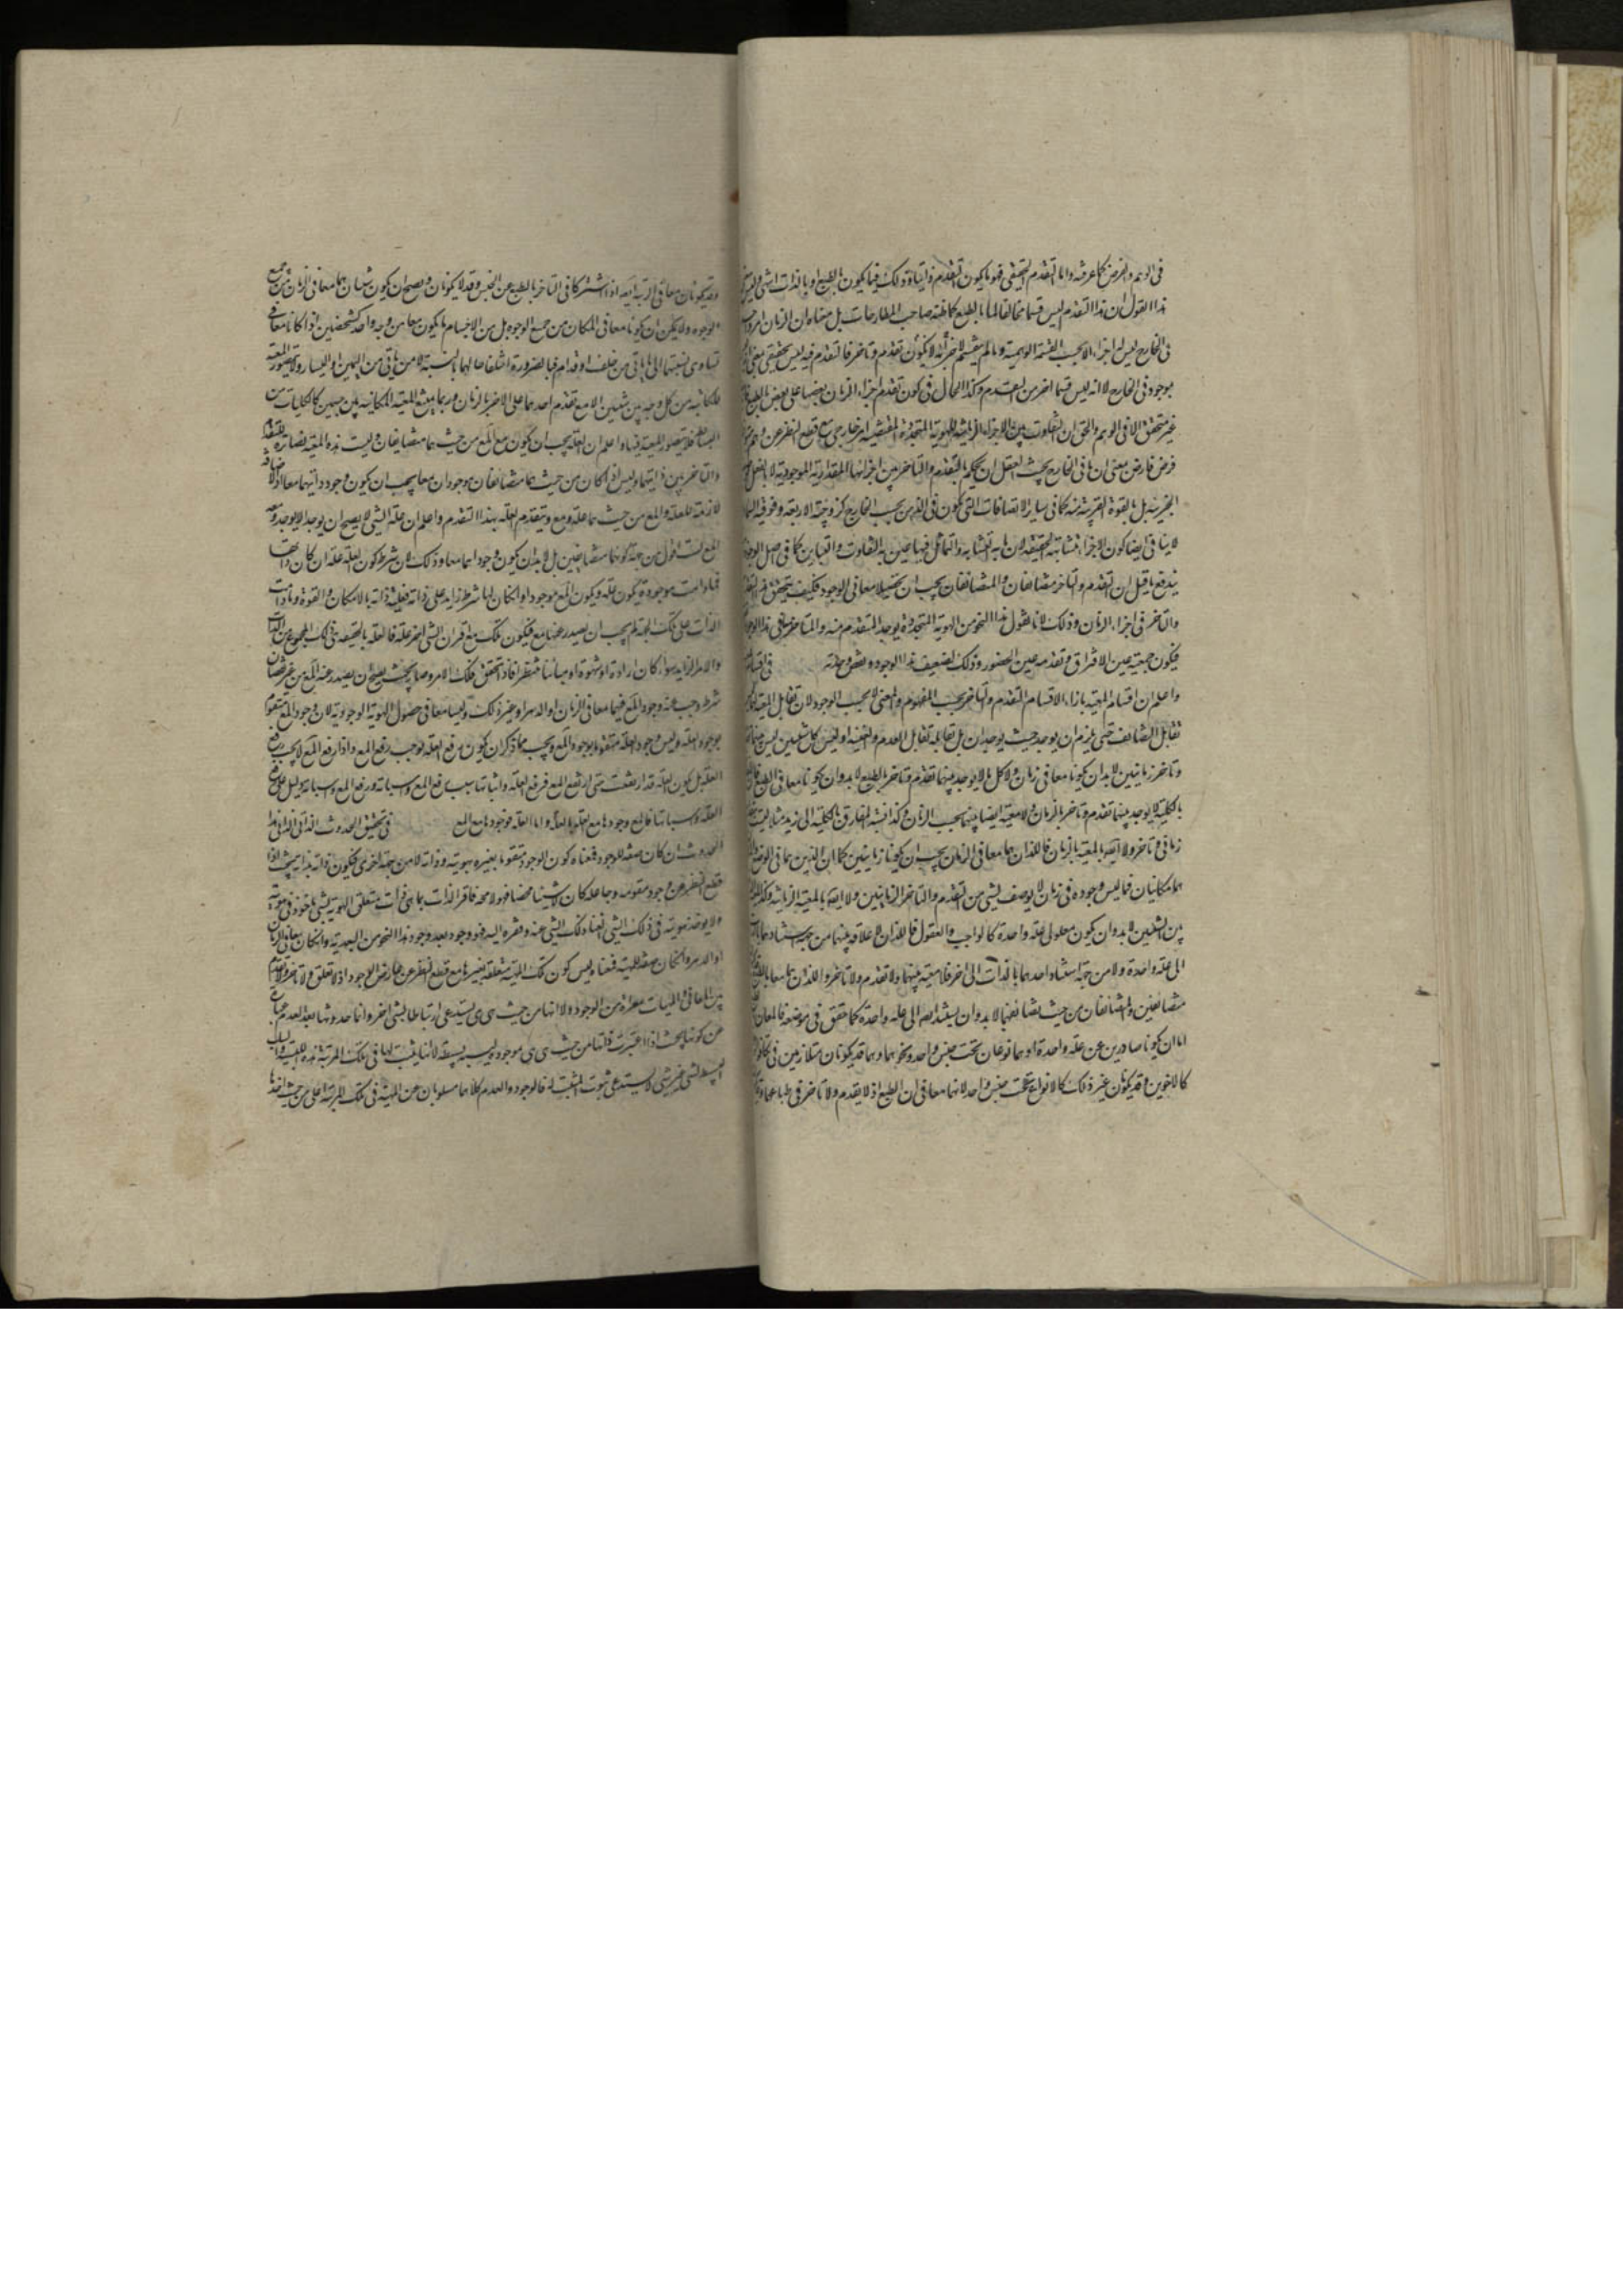 في الوهم والفرض كما عرفته واما التقدم الحقيقي فهو ما يكون التقدم ذاتيا وذلك فيما يكون بالطبع او بالذات
هذا القول ان هذا التقدم ليس قسما مخالفا لما بالطبع كما ظنه صاحب المطارحات بل معناه ان الزمان امر واحد
في الخارج ليس له اجزاء الا بحسب القسمة الوهمية وما لم ينقسم لا جزء له لا يكون تقدم وتاخر فالتقدم فيه ليس بحقيقي
موجود في الخارج لا انه ليس قسما اخر من التقدم وكذا الحال في كون تقدم اجزاء الزمان بعضها على بعض بالطبع
غير متحقق الا في الوهم والحق ان التفاوت بين الاجزاء الزمانية للهوية المتجددة المقتضية امر خارجي مع قطع النظر عن وهم
فرض فارض بمعنى ان ما في الخارج بحيث للعقل ان يحكم بالتقدم والتاخر بين اجزائها المقدارية الموجودة لا بالفعل
الجزئية بل بالقوة القريبة منه كما في سائر الاتصافات التي تكون في الذهن بحسب الخارج كزوجية الاربعة وفوقية السماء
لا ينافي ايضا كون الاجزاء متشابهة الحقيقة لان ما به التشابه والتماثل فيها عين ما به التفاوت والتباين كما في اصل الوجود
يندفع ما قيل ان التقدم والتاخر متضايفان والمتضايفان يجب ان يحصلا معا في الوجود فكيف يتحقق
والتاخر في اجزاء الزمان وذلك لانا نقول هذا النحو من الهوية المتجددة يوجد المتقدم منه والمتاخر معا في هذا الوجود
فيكون جمعيته عين الافتراق وتقدمه عين الحضور وذلك لضعف هذا الوجود ونقص وحدته في اقسام
واعلم ان اقسام المعية بازاء الاقسام التقدم والتاخر بحسب المفهوم والمعنى لا بحسب الوجود لان تقابل المعية
تقابل التضايف حتى يلزم ان يوجد حيث يوجدان بل تقابلهما تقابل العدم والقنية اوليس كل شيئين ليس بينهما
وتاخر زمانيين لا بد ان يكونا معا في زمان ولا كل ما لا يوجد بينهما تقدم وتاخر بالطبع لا بد وان يكونا معا في الطبع
بالكلية لا يوجد بينهما تقدم وتاخر بالزمان ولا معية ايضا بينهما بحسب الزمان وكذا نسبة المفارق بالكلية الى زيد مثلا ليست
زماني وتاخر ولا ايضا بالمعية بالزمان فاللذان هما معا في الزمان يجب ان يكونا زمانيين كما ان اللذين هما في الوضع
هما مكانيان فما ليس وجوده في زمان لا يوصف بشيء من التقدم والتاخر الزمانيين ولا ايضا بالمعية الزمانية وكذا
بين الشيئين لا بد وان يكون معلولي علة واحدة كالواجب والعقول فاللذان لا علاقة بينهما من جهة استنادهما
الى علة واحدة ولا من جهة استناد احدهما بالذات الى الاخر فلا معية بينهما ولا تقدم ولا تاخر واللذان هما معا بالطبع
متضايفين والمتضايفان من حيث تضايفهما لا بد وان يستندا ايضا الى علة واحدة كما حقق في موضعه فالمعان
اما ان يكونا صادرين عن علة واحدة او هما نوعان تحت جنس واحد ونحوهما وهما قد يكونان متلازمين في تكافؤ
كالاخوين وقد يكون غير ذلك كالانواع تحت جنس واحد لانهما معا في ان الطبع اذ لا تقدم ولا تاخر في طباعهما
وقد يكونان معا في الرتبة ايضا اذا اشتركا في التاخر بالطبع عن الجنس وقد لا يكونان ويصح ان يكون شيئان هما معا في الزمان من جميع
الوجوه ولا يمكن ان يكونا معا في المكان من جميع الوجوه بل من الاجسام ما يكون معا من وجه واحد كشخصين اذا كانا معا في
تساوي نسبتهما الى ما ياتي من خلف او قدام فبالضرورة اختلفا حالهما بالنسبة الى من ياتي من اليمين او اليسار ولا يتصور المعية
المكانية من كل وجه بين شيئين الا مع تقدم احدهما على الاخر بالزمان وربما يمتنع المعية المكانية بين جسمين كالكليات من
البسائط فلا يتصور المعية فيها واعلم ان العلة يجب ان يكون مع المع من حيث هما متضايفان وليست هذه المعية بضارة للتقدم
والتاخر بين ذاتيهما وليس اذا كان من حيث هما متضايفان موجودان معا يجب ان يكون وجود ذاتيهما معا اولا اضافة
لازمة للعلة والمع من حيث هما علة ومع وتتقدم العلة بهذا التقدم واعلم ان علة الشيء لا يصح ان يوجد الا ويوجد معه
المع لست اقول من جهة كونهما متضايفين بل لا بد ان يكون وجوداهما معا وذلك لان شرط كون العلة علة ان كان ذاتها
فما دامت موجودة يكون علة ويكون المع موجودا وان كان لها شرط زايد على ذاته فعلية ذاته بالامكان والقوة وما دامت
الذات على تلك الجهة لم يجب ان يصدر عنها مع فيكون تلك مع اقتران الشيء الاخر علة فالعلة بالحقيقة هي ذلك المجموع من الذات
والامر الزايد سواء كان ارادة او شهوة او مباينا منتظرا فاذا تحقق ذلك الامر وصار بحيث يصح ان يصدر عنه المع من غير نقصان
شرط وجب عنه وجود المع فهما معا في الزمان او الدهر او غير ذلك وليسا معا في حصول الهوية الوجودية لان وجود المع متقوم
بوجود العلة وليس وجود العلة متقوما بوجود المع ويجب مما ذكر ان يكون رفع العلة يوجب رفع المع واذا رفع المع لا يجب رفع
العلة بل يكون العلة قد ارتفعت حتى ارتفع المع فرفع العلة واثباتها سبب رفع المع واثباته ورفع المع واثباته دليل على رفع
العلة واثباتها فالمع وجوده مع العلة بالعلة واما العلة فوجودها مع المع في تحقيق الحدوث الذاتي
الحدوث ان كان صفة للوجود فمعناه كون الوجود متقوما بغيره بهويته وذاته لا من جهة اخرى فيكون ذاته بذاته بحيث اذا
قطع النظر عن وجود مقومه وجاعله كان لا شيئا محضا فهو لا محة فاقر الذات بما هي ذات متعلق الهوية بشيء ماخوذ في هويته
ولا يؤخذ هويته في ذلك الشيء لغناء ذلك الشيء عنه وفقره اليه فهو وجود بعد وجود هذا النحو من البعدية وان كان معا في الزمان
او الدهر وان كان صفة للمهية فمعناه ليس كون تلك المهية متعلقة بغيرها مع قطع النظر عن عارض الوجود اذ لا تعلق ولا تاخر ولا تقدم
بين المعاني والمهيات معراة من الوجود ولا انها من حيث هي هي يستدعي ارتباطا بشيء اخر وانما حدوثها بعد العدم عبارة
عن كونها بحيث اذا اعتبرت ذاتها من حيث هي هي موجودة ليسية بسيطة لا انها يثبت لها في تلك المرتبة هذه الليسية والسلب
البسيط لشيء عن شيء لا يستدعي ثبوت المثبت له فالوجود والعدم كلاهما مسلوبان عن المهية في تلك المرتبة اعني من حيث اخذها